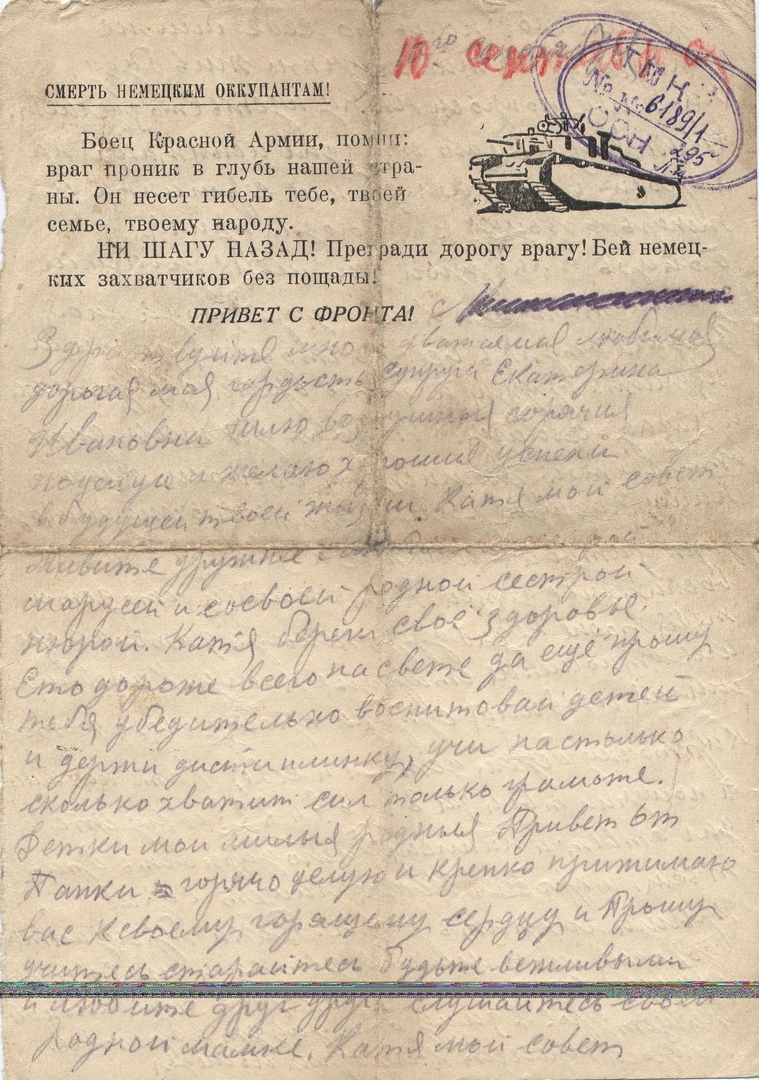 10го сентября
СМЕРТЬ НЕМЕЦКИМ ОККУПАНТАМ!
ГМК
№ 6189/1
ООН 295
Боец Красной Армии, помни:
враг проник в глубь нашей стра-
ны. Он несет гибель тебе, твоей
семье, твоему народу.
НИ ШАГУ НАЗАД! Прегради дорогу врагу! Бей немец-
ких захватчиков без пощады!
ПРИВЕТ С ФРОНТА! с
Здравствуйте много уважаемая любимая
дорогая моя гордость супруга Екатерина
Ивановна шлю воздушная горячия
поцелуи и желаю хорошия успехи
в будущей твоей жизни Катя мой совет
живите дружнее
и сосвоей родной сестрой
нюрой. Катя береги своё здоровье.
Ето дороже всего насвете да ещё прошу
тебя убедительно воспитовай детей
и держи дистиплинку, учи настолько
сколько хватит сил только грамоте.
Детки мои милыя родныя Привет от
Папки горячо целую и крепко прижимаю
вас ксвоему горящему сердцу и Прошу
учитесь старайтесь будьте вежливыми
и любите друг друга слушайтесь свои
родной мамке. Катя мой совет